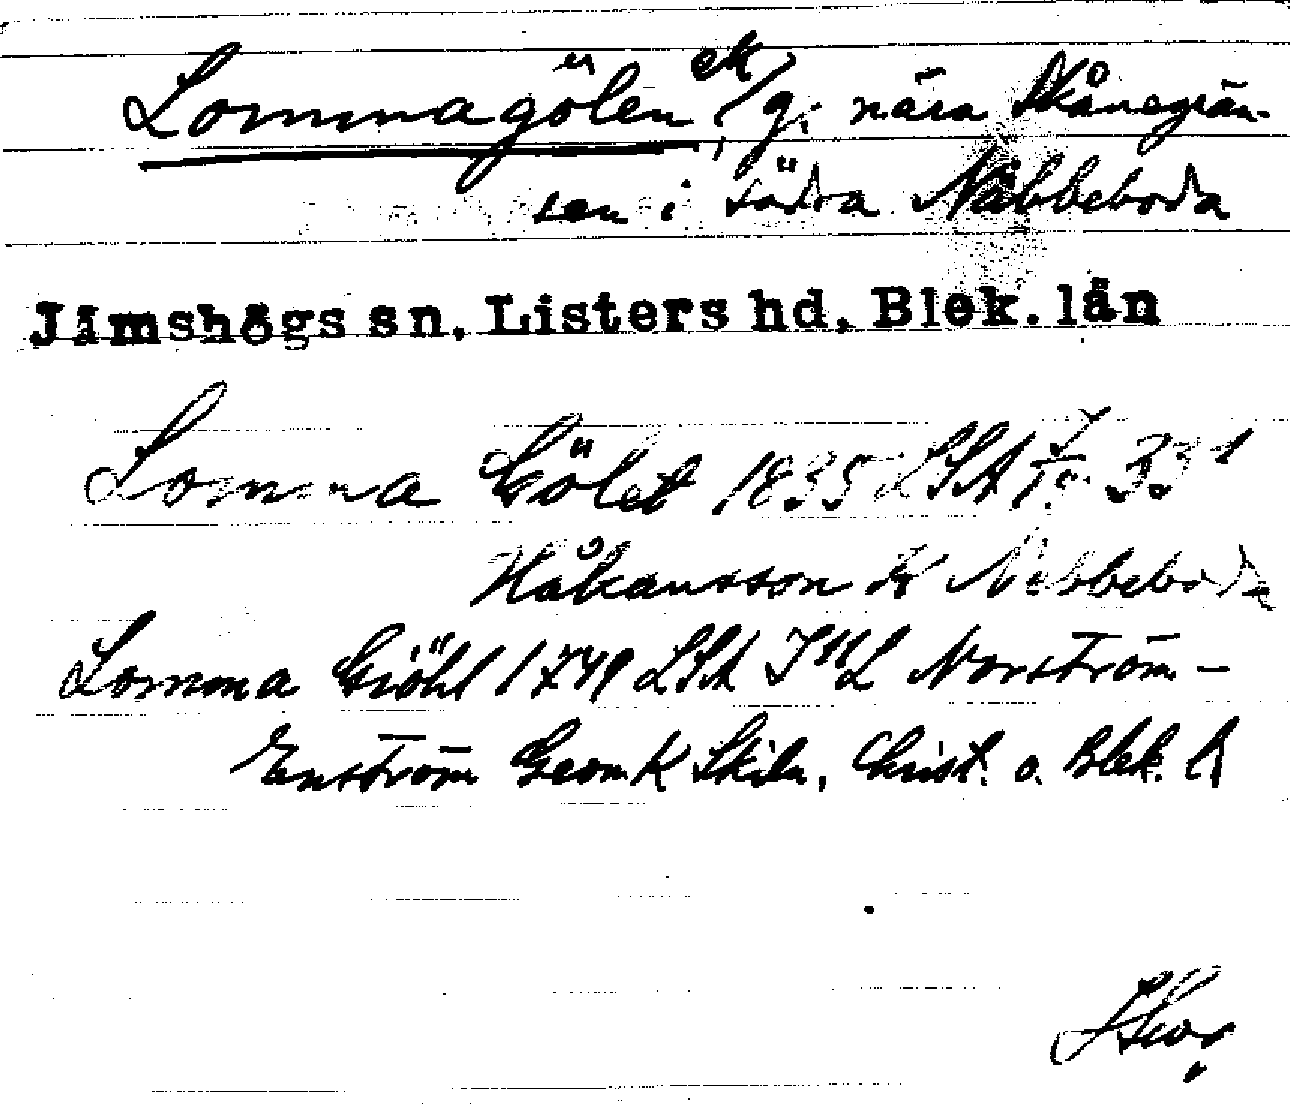 Lommagölen, ek/g. nära Skånegrän-
sen i södra Näbbeboda
Jämshögs sn, Listers hd, Blek. län
Lomma Gölet 1835 LSA 33¹
Håkansson K Nebbeboda
Lomma Giöhl 1749 LSA Norström-
Enström Geom K Skån, Christ. o. Blek. l